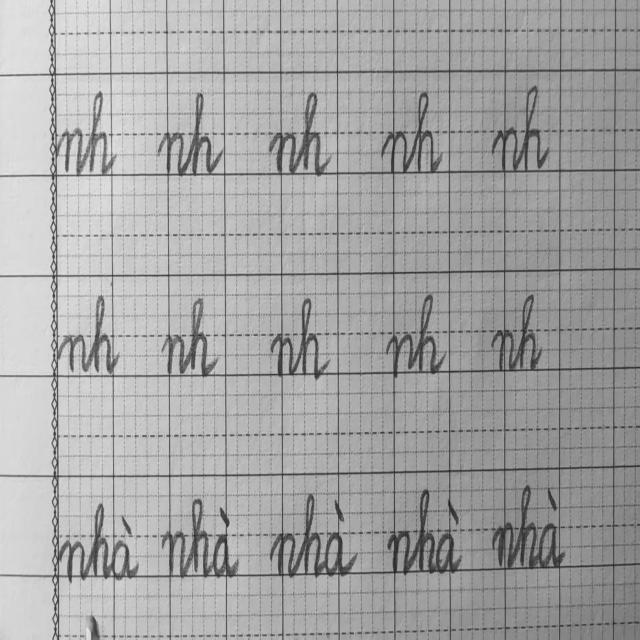 nh nh nh nh nh
nh nh nh nh nh
nhà nhà nhà nhà nhà